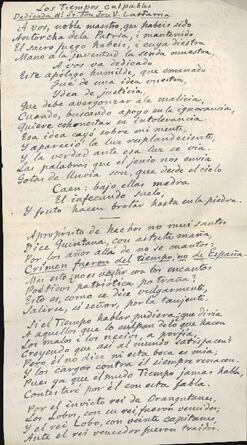 Los Tiempos culpables
Dedicada al Sr. Don José V. Lastarria
A vos, noble maestro, que habeis sido
Antorcha de la Patria, i mantenido
El sacro fuego habeis, i cuya diestra
Mano a la juventud la senda muestra
A vos va dedicado
Este apólogo humilde, que emanado
Fué de una idea vuestra,
Idea de justicia,
Que debe avergonzar a la malicia
Cuando, buscando apoyo en la ignorancia,
Quiere cohonestar su intolerancia
Esa idea cayó sobre mi mente,
Y apareció la luz resplandeciente,
Y la verdad ante esa luz se vía.
Las palabras que el jenio nos envia
Gotas de lluvia son, que desde el cielo
Caen: bajo ellas medra
El infecundo suelo,
Y fruto hacen brotar hasta en la piedra.
Apropósito de hechos no mui santos
Dice Quintana, con astuta maña
Por los años allá de no sé cuantos:
Crimen fueron del tiempo, no de España
Mas esto no es vestir con los encantos
Poéticos patriótica patraña?
Esto es, como se dice vulgarmente,
Salirse, si señor, por la tanjente.
Si el Tiempo hablar pudiera, que diria
A aquellos que lo culpan de lo que hacen
Los malos i los necios, a porfia,
Creyendo que asi al mundo satisfacen?
Pero él no dice ni esta boca es mia;
Y los cargos contra él siempre renacen.
Pues ya que el mudo Tiempo jamas habla,
Contestaré por él con esta fabla.
Por el invicto rei de Orangutanes
Los Lobos, con su rei, fueron vencidos;
Y el rei Lobo, con veinte capitanes,
Ante el rei vencedor fueron traidos.